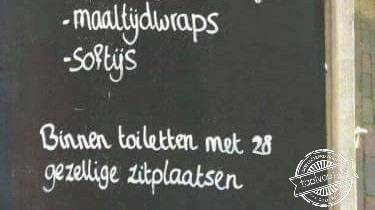 -maaltijdwraps
-softijs
Binnen toiletten met 28
gezellige zitplaatsen